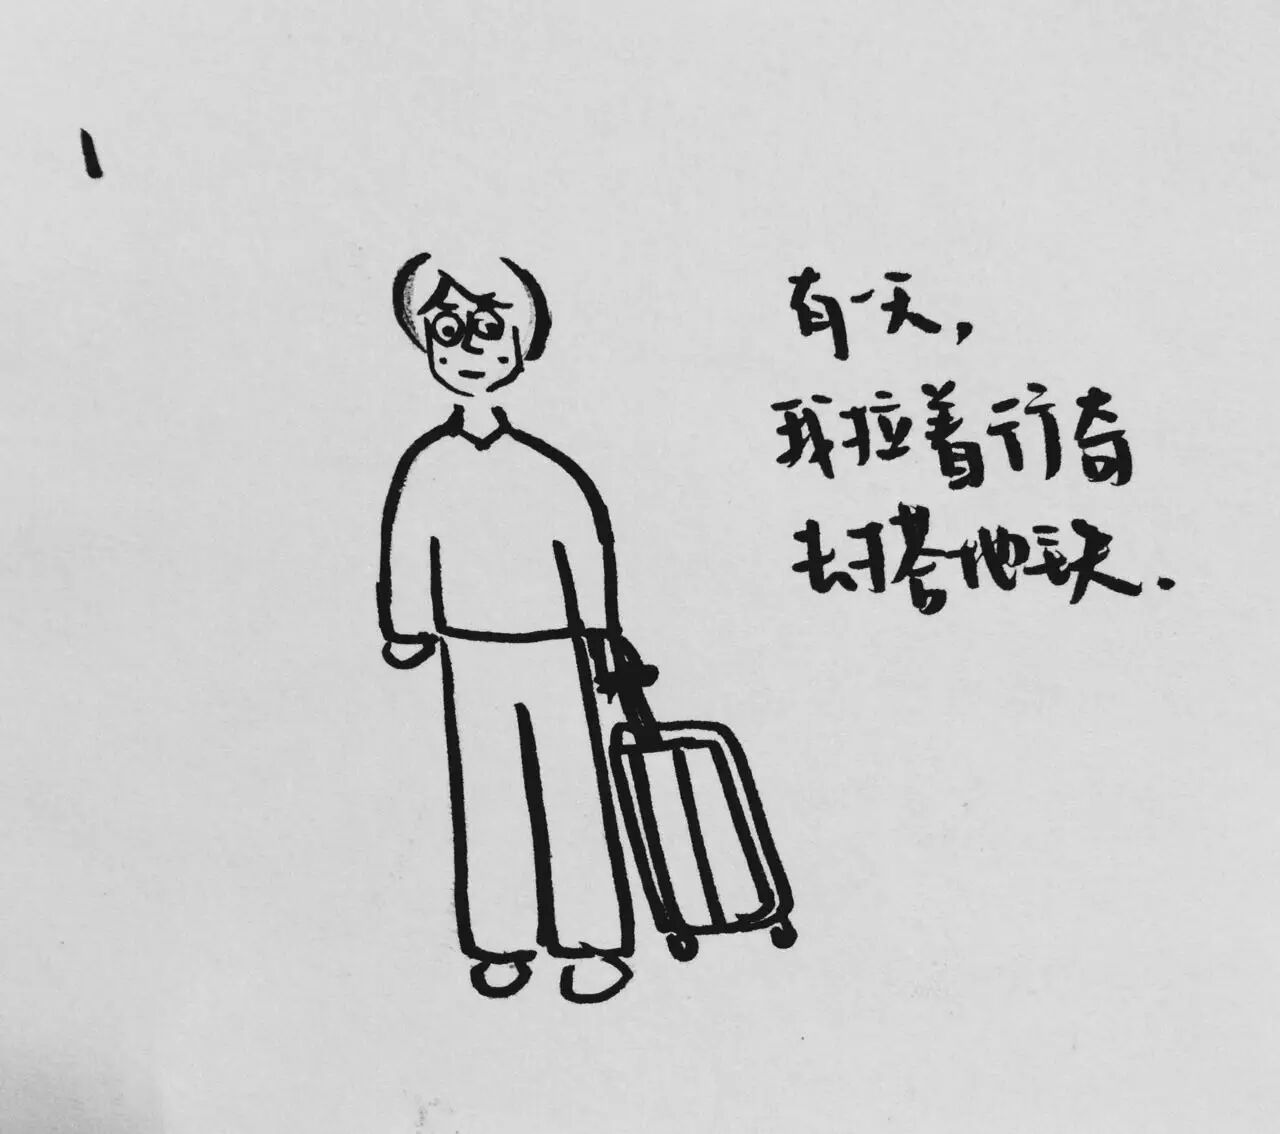 1
有一天，
我拉着行奇
去搭地铁.